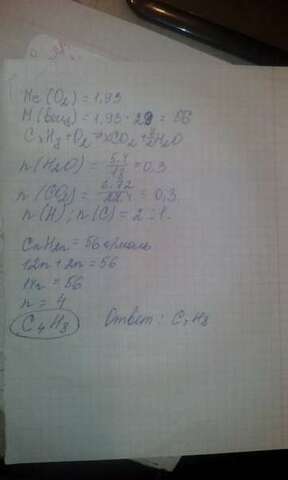 Mr(O2) = 1,93
M(вещ) = 1,93 · 29 = 56
CxHy + O2 = xCO2 + y/2 H2O
n(H2O) = 5,4/18 = 0,3
n(CO2) = 6,72/22,4 = 0,3
n(H) : n(C) = 2 : 1.
CnH2n = 56 г/моль
12n + 2n = 56
14n = 56
n = 4
C4H8 Ответ: C4H8